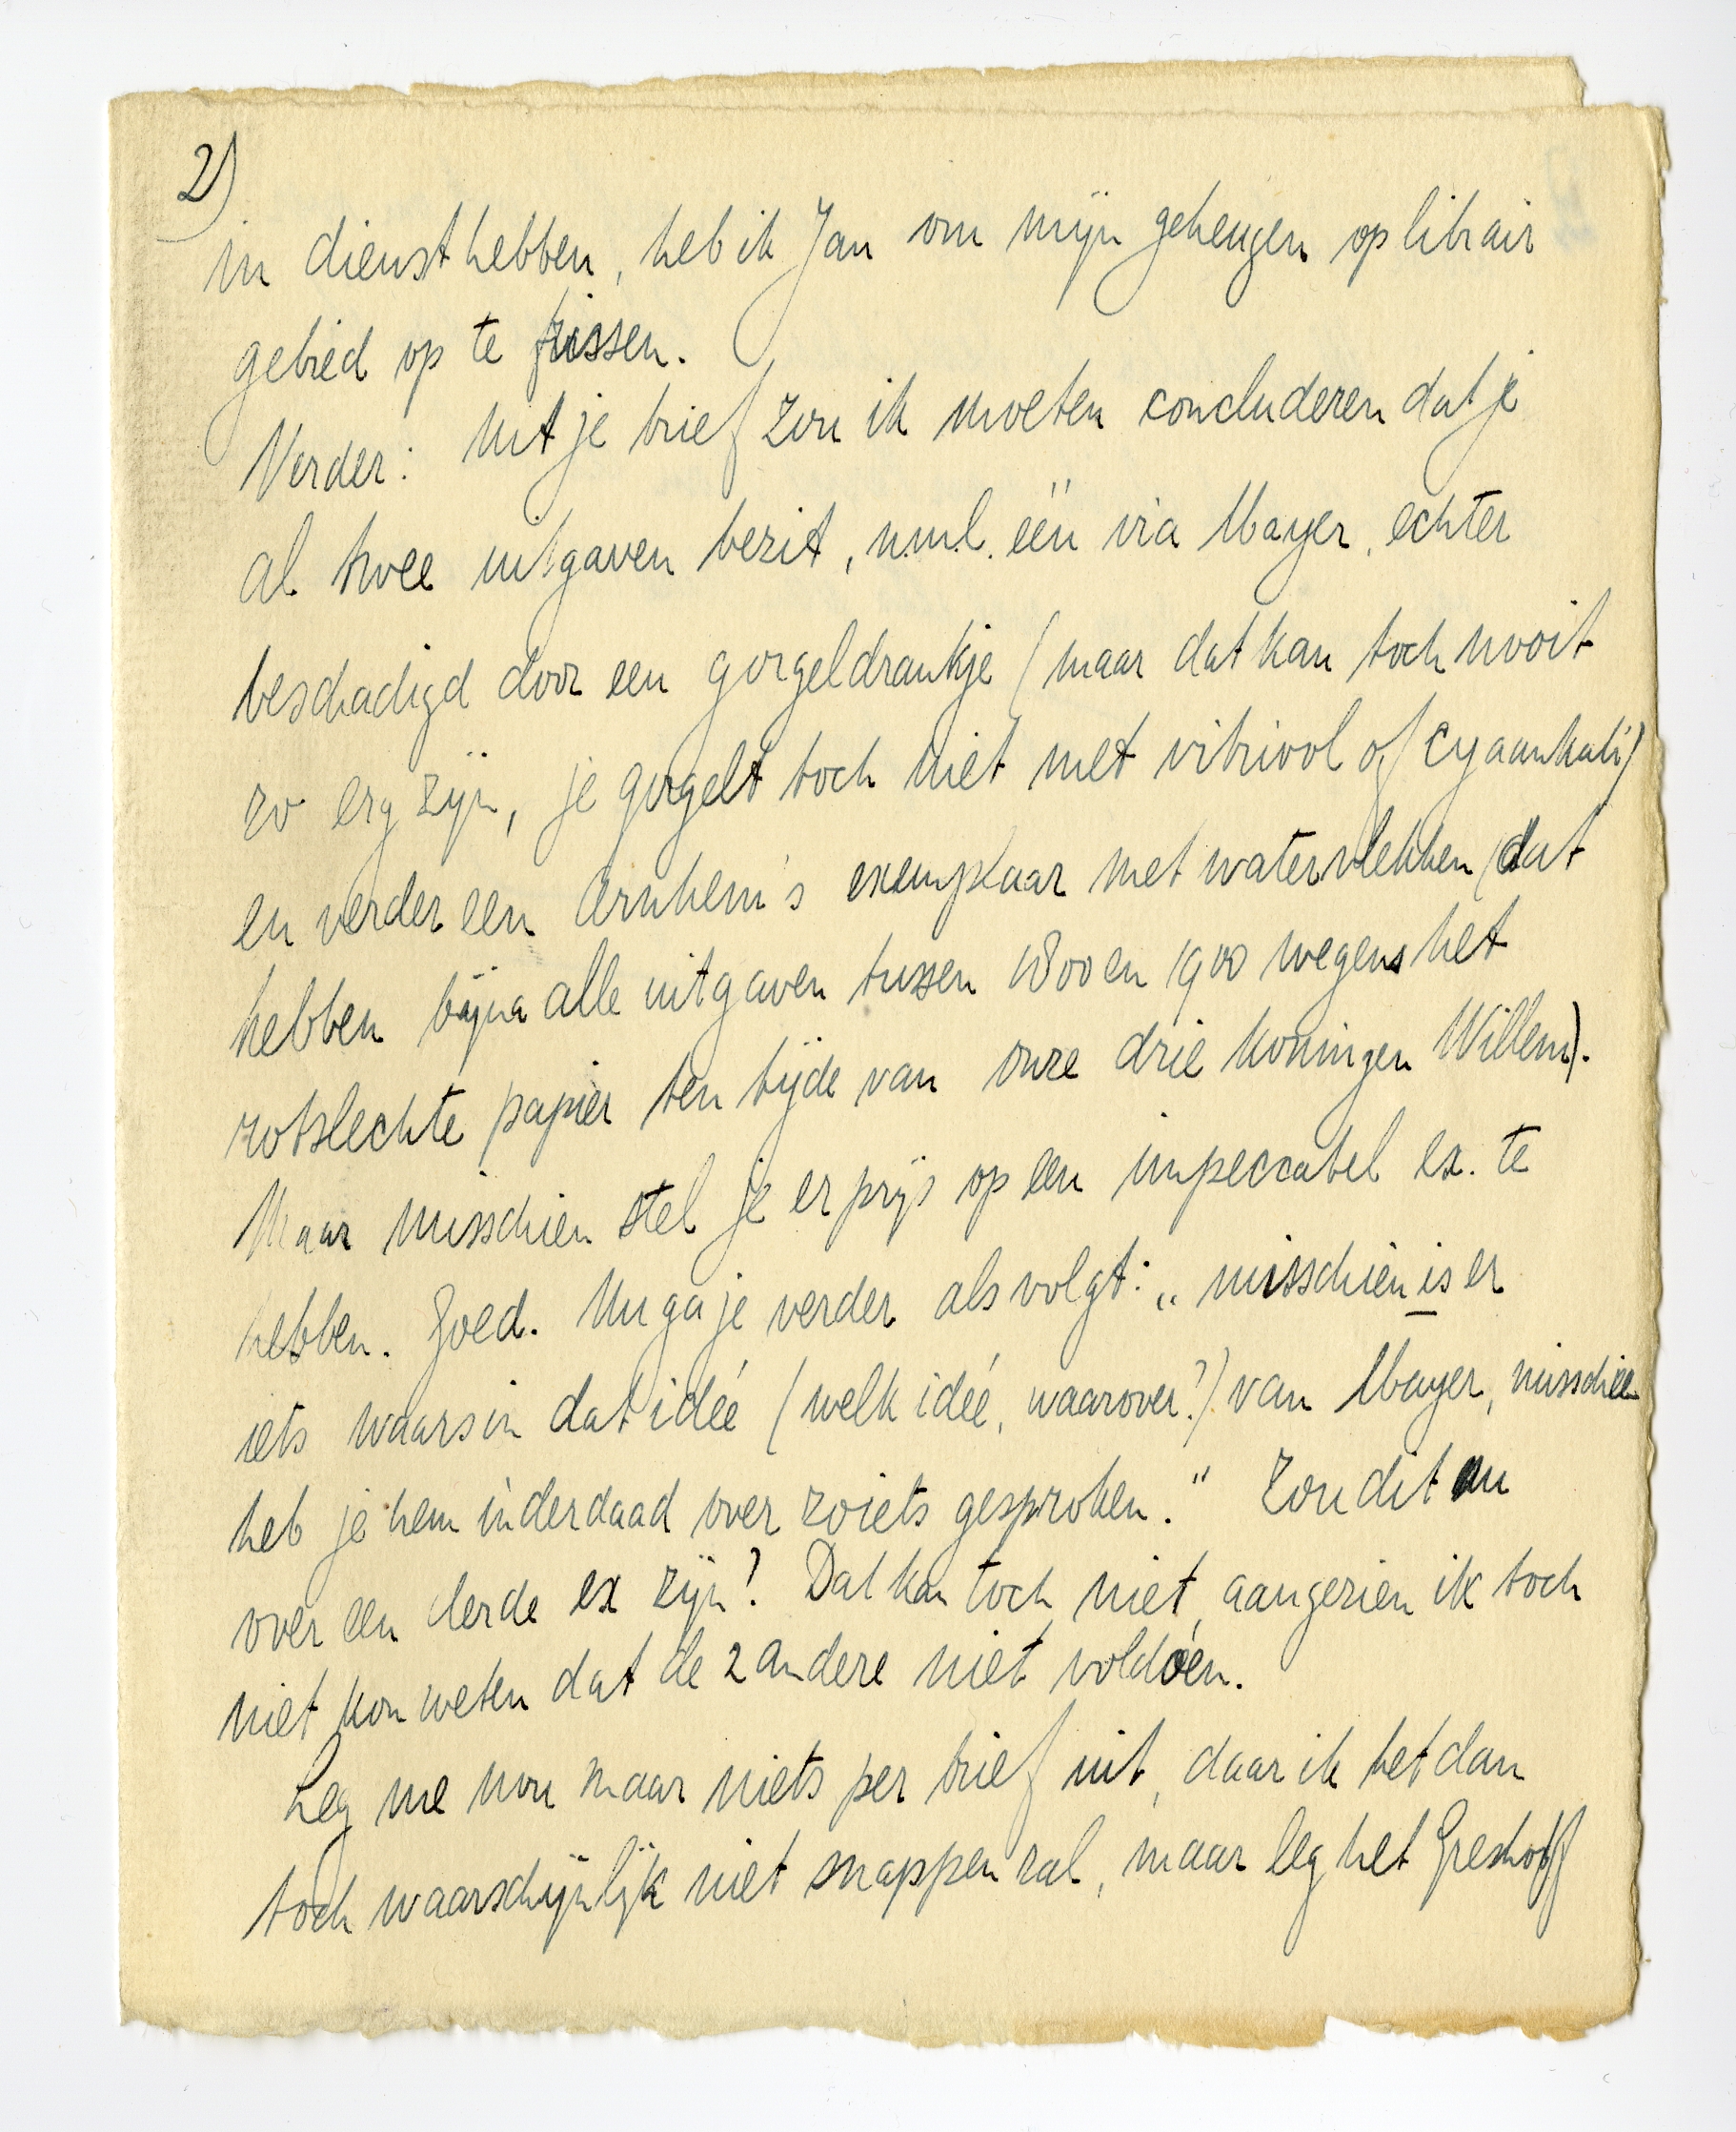 2)
in dienst hebben, heb ik Jan om mijn geheugen op librair
gebied op te frissen.
Verder: Uit je brief zou ik moeten concluderen dat je
al twee uitgaven bezit, n.m.l. één via Mayer, echter
beschadigd door een gorgeldrankje (maar dat kan toch nooit
zo erg zijn, je gorgelt toch niet met vitriool of cyaankali)
en verder een Arnhem's exemplaar met watervlekken (dat
hebben bijna alle uitgaven tussen 1800 en 1900 wegens het
rotslechte papier ten tijde van onze drie koningen Willem).
Maar misschien stel je er prijs op een impeccabel ex. te
hebben. Goed. Nu ga je verder als volgt: „misschien is er
iets waars in dat idéé (welk idéé, waarover?) van Mayer, misschien
heb je hem inderdaad over zoiets gesproken." Zou dit nu
over een derde ex zijn? Dat kan toch niet, aangezien ik toch
niet kon weten dat de 2 andere niet voldóen.
Leg me nou maar niets per brief uit, daar ik het dan
toch waarschijnlijk niet snappen zal, maar leg het Greshoff